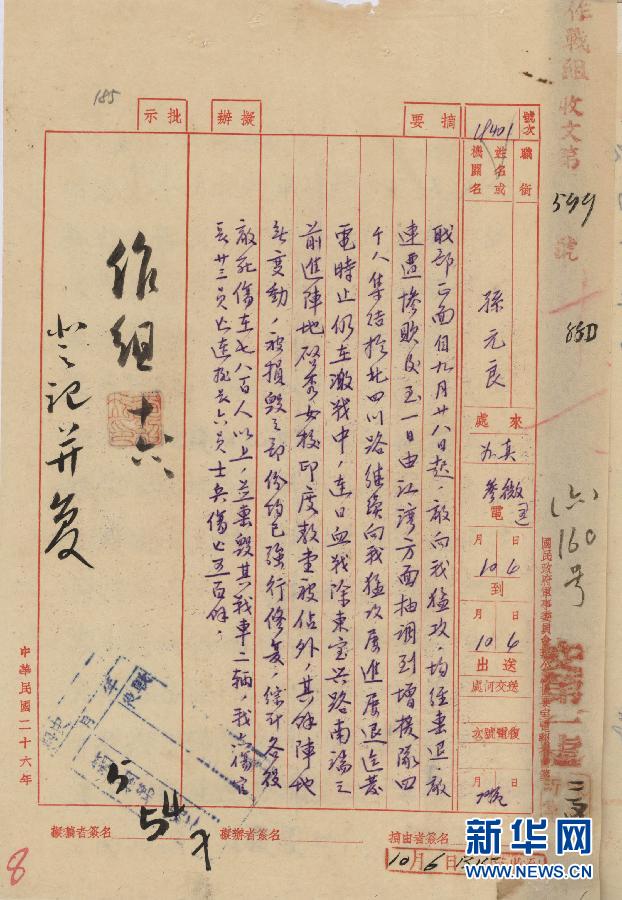 作戰組收文第
599
號
(六)
160号
號次
18401
職銜
姓名或機關名
孫元良
來處
電
月 日
10 6
到
月 日
10 6
送出
送交何處
復電號次
月 日
摘要
擬辦
批示
185
職部正面自九月廿八日起，敵向我猛攻，均經擊退，敵
連遭慘敗後至一日由江灣方面抽調到增援隊四
千人集結於北四川路繼續向我猛攻屢進屢退迄發
電時止仍在激戰中，連日血戰除東宝兴路南端之
前進陣地啓秀女校印度教堂被佔外，其餘陣地
無變動，被損毀之部份均已強行修复，綜計各役
敵死傷在七八百人以上，並擊毀其戰車二輛，我
士兵傷亡五百餘，
作組
十六
登记并复
中華民國二十六年
擬稿者簽名
擬辦者簽名
摘由者簽名
10月6日
8
新华网
WWW.NEWS.CN